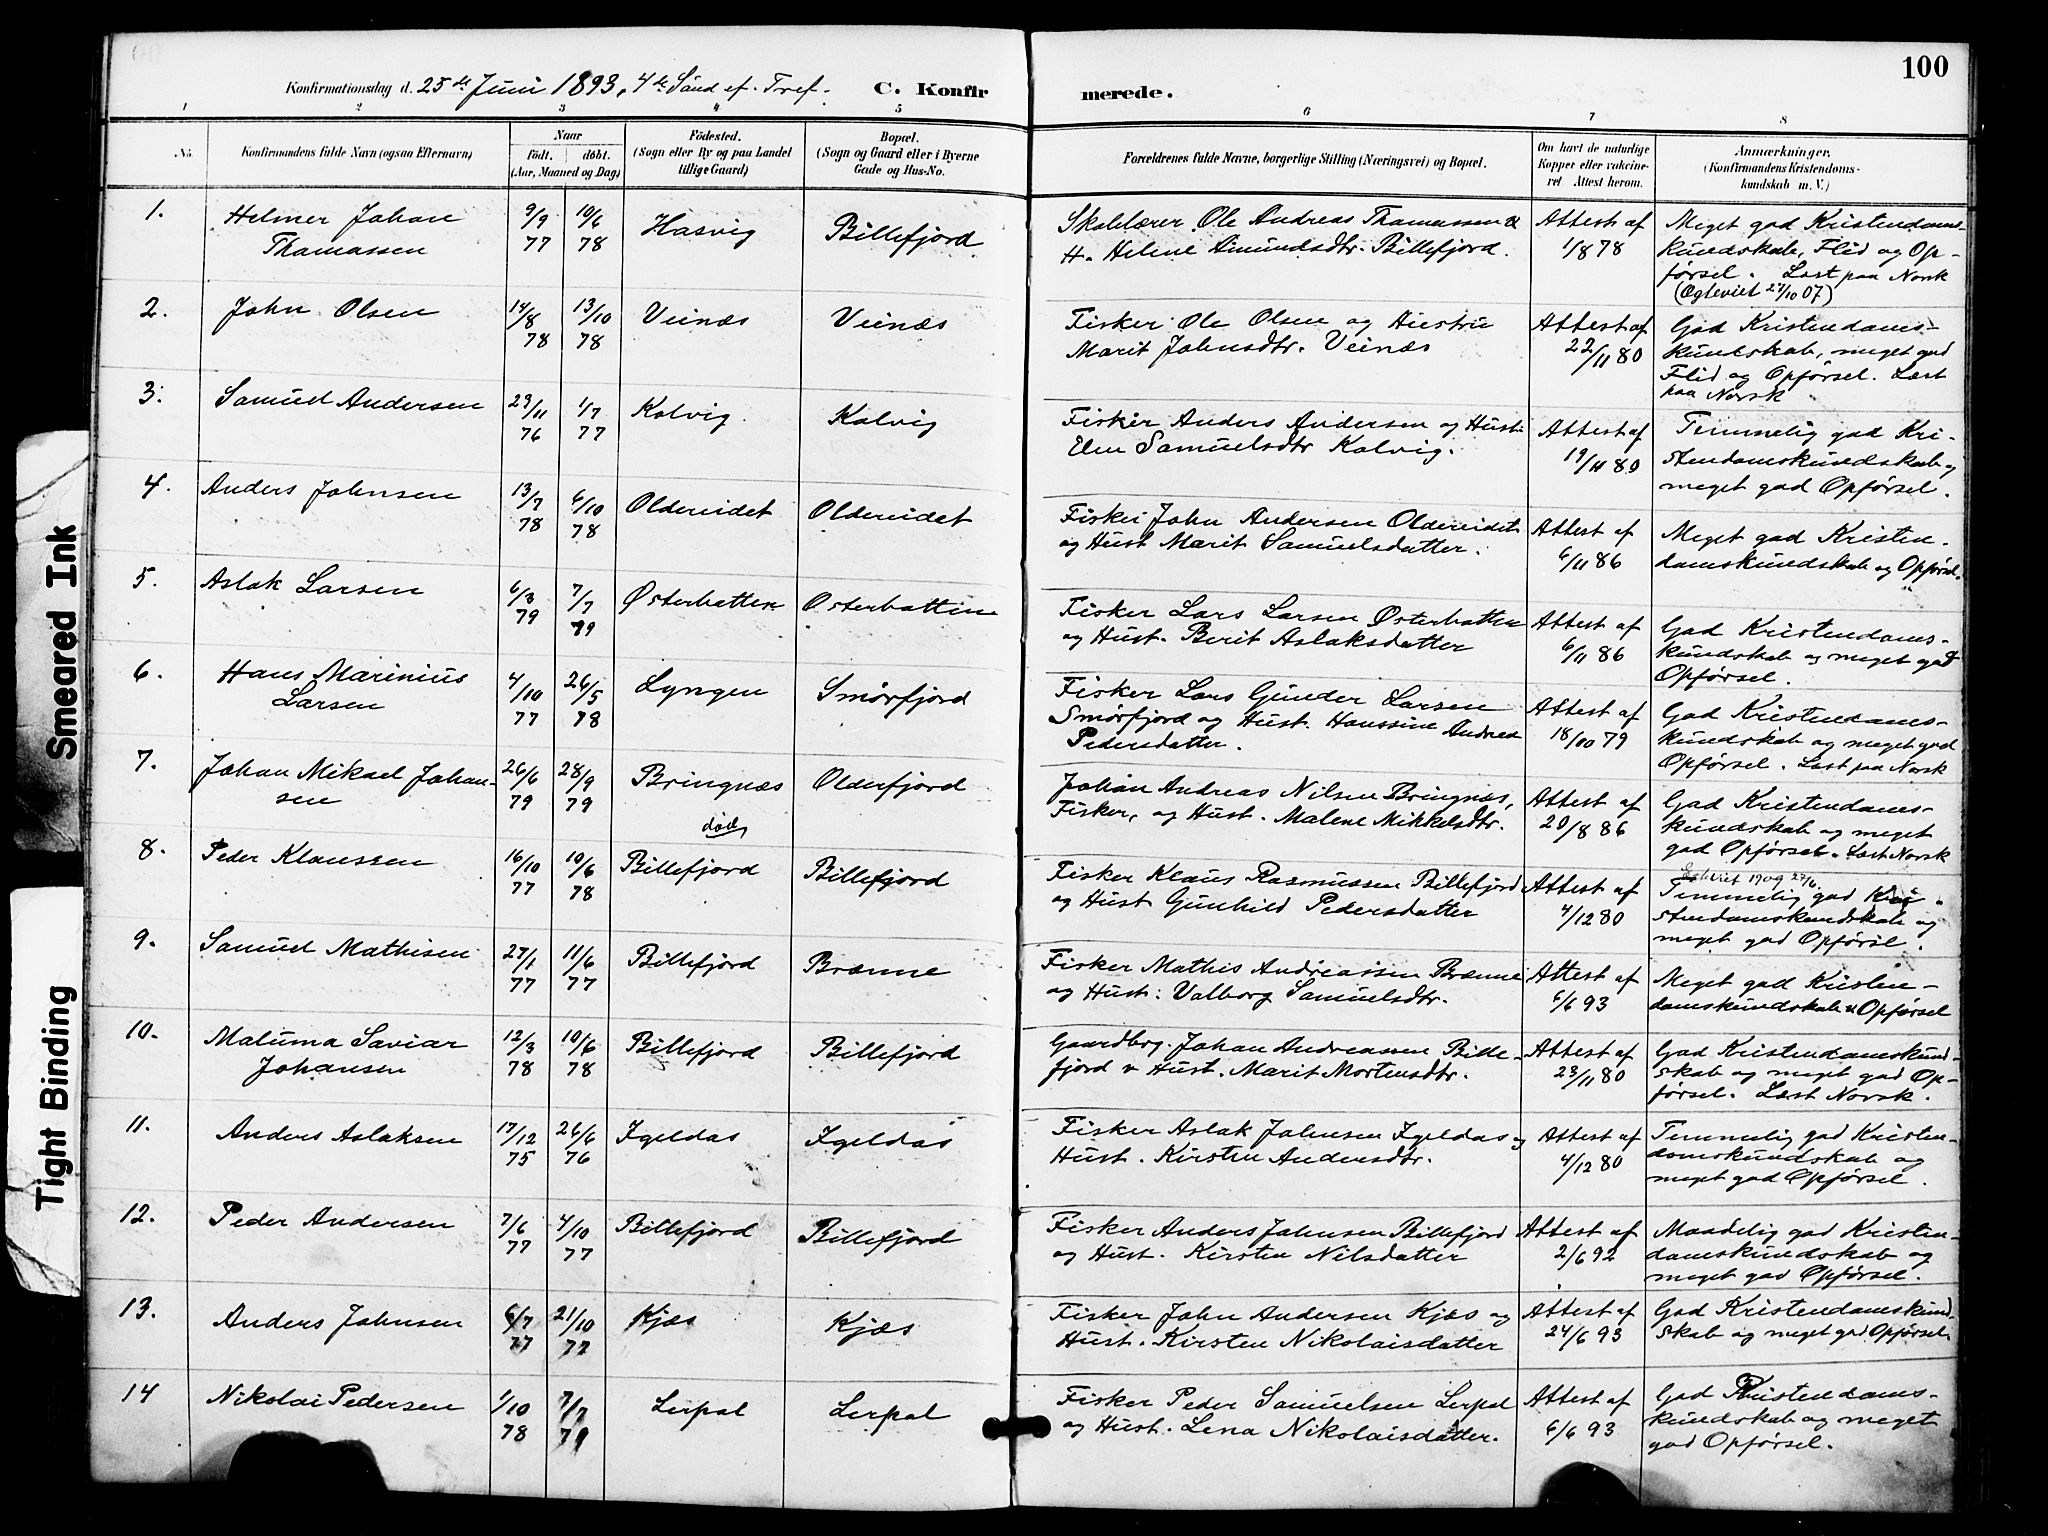 100
Konfirmationsdag d. 25de Juni 1893, 4de Sönd ef. Tref. C. Konfirmerede.
1 2 3 4 5 6 7 8
No. Konfirmandens fulde Navn (ogsaa Efternavn)
Naar
födt. döbt.
(Aar, Maaned og Dag)
Födested.
(Sogn eller By og paa Landet
tillige Gaard)
Bopæl.
(Sogn og Gaard eller i Byerne
Gade og Hus-No.
Forældrenes fulde Navne, borgerlige Stilling (Næringsvei) og Bopæl.
Om havt de naturlige
Kopper eller vaccine-
ret Attest herom.
Anmærkninger.
(Konfirmandens Kristendoms-
kundskab m. V.)
1. Helmer Johan
Thomassen
9/9
77
10/6
78
Hasvig
Billefjord
Skolelærer Ole Andreas Thomassen &
H. Helene Amundsdtr. Billefjord.
Attest af
1/8 78
Meget god Kristendoms-
kundskab, Flid og Op-
førsel. Læst paa Norsk
(Ægteviet 27/10 07)
2. John Olsen
14/8
78
13/10
78
Veinæs
Veinæs
Fisker Ole Olsen og Hustru
Marit Johnsdtr. Veinæs
Attest af
22/11 80
God Kristendoms-
kundskab, meget god
Flid og Opførsel. Læst
paa Norsk
3. Samuel Andersen
23/11
76
1/7
77
Kolvig
Kolvig
Fisker Anders Andersen og Hust.
Elen Samuelsdtr Kolvig.
Attest af
19/11 80
Temmelig god Kri-
stendomskundskab og
meget god Opførsel.
4. Anders Johnsen
13/7
78
6/10
78
Oldereidet
Oldereidet
Fisker John Andersen Oldereidet
og Hust Marit Samuelsdatter.
Attest af
6/11 86
Meget god Kristen-
domskundskab og Opførsel.
5. Aslak Larsen
6/3
79
7/7
79
Østerbotten
Østerbotten
Fisker Lars Larsen Østerbotten
og Hust. Berit Aslaksdatter
Attest af
6/11 86
God Kristendoms-
kundskab og meget god
Opførsel.
6. Hans Marinius
Larsen
4/10
77
26/5
78
Lyngen
Smørfjord
Fisker Lars Ginder Larsen
Smørfjord og Hust. Hanssine Andrea
Pedersdatter.
Attest af
18/10 79
God Kristendoms-
kundskab og meget god
Opførsel. Læst paa Norsk
7. Johan Mikael Johan-
sen
26/6
79
28/9
79
Bringnæs
Olderfjord
Johan Andreas Nilsen Bringnæs,
Fisker, og Hust. Malene Mikkelsdtr.
Attest af
20/8 86
God Kristendoms-
kundskab og meget
god Opførsel. Læst Norsk
8. Peder Klaussen
16/10
77
10/6
78
død
Billefjord
Billefjord
Fisker Klaus Rasmussen Billefjord
og Hust Gunhild Pedersdatter
Attest af
4/12 80
1909 27/6.
Temmelig god Kri-
stendomskundskab og
meget god Opførsel.
9. Samuel Mathisen
27/1
77
11/6
77
Billefjord
Brænne
Fisker Mathis Andreassen Brænne
og Hust: Valborg Samuelsdtr.
Attest af
6/6 93
Meget god Kristen-
domskundskab & Opførsel
10. Maluma Saviar
Johansen
12/3
78
10/6
78
Billefjord
Billefjord
Gaardbrg. Johan Andreassen Bille-
fjord & Hust. Marit Mortensdtr.
Attest af
23/11 80
God Kristendomskund-
skab og meget god Op-
førsel. Læst Norsk.
11. Anders Aslaksen
17/12
75
26/6
76
Igeldas
Igeldas
Fisker Aslak Johnsen Igeldas og
Hust. Kirsten Andersdtr.
Attest af
4/12 80
Temmelig god Kristen-
domskundskab og
meget god Opførsel.
12. Peder Andersen
7/6
77
4/10
77
Billefjord
Billefjord
Fisker Anders Johnsen Billefjord
og Hust. Kirsten Nilsdatter
Attest af
2/6 92
Maadelig god Kristen-
domskundskab og
meget god Opførsel.
13. Anders Johnsen
6/7
77
21/10
77
Kjæs
Kjæs
Fisker John Andersen Kjæs og
Hust. Kirsten Nikolaisdatter
Attest af
24/6 93
God Kristendomskund-
skab og meget god Opførsel.
14 Nikolai Pedersen
1/10
78
7/7
79
Lerpol
Lerpol
Fisker Peder Samuelsen Lerpol
og Hust. Lena Nikolaisdatter.
Attest af
6/6 93
God Kristendoms-
kundskab og meget
god Opførsel.
Smeared Ink
Tight Binding